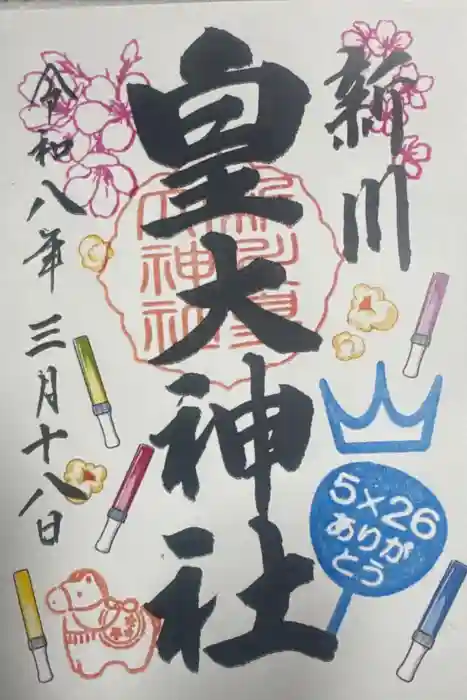 新川
皇大神社
令和八年三月十八日
新川皇大神社
5×26
ありが
とう